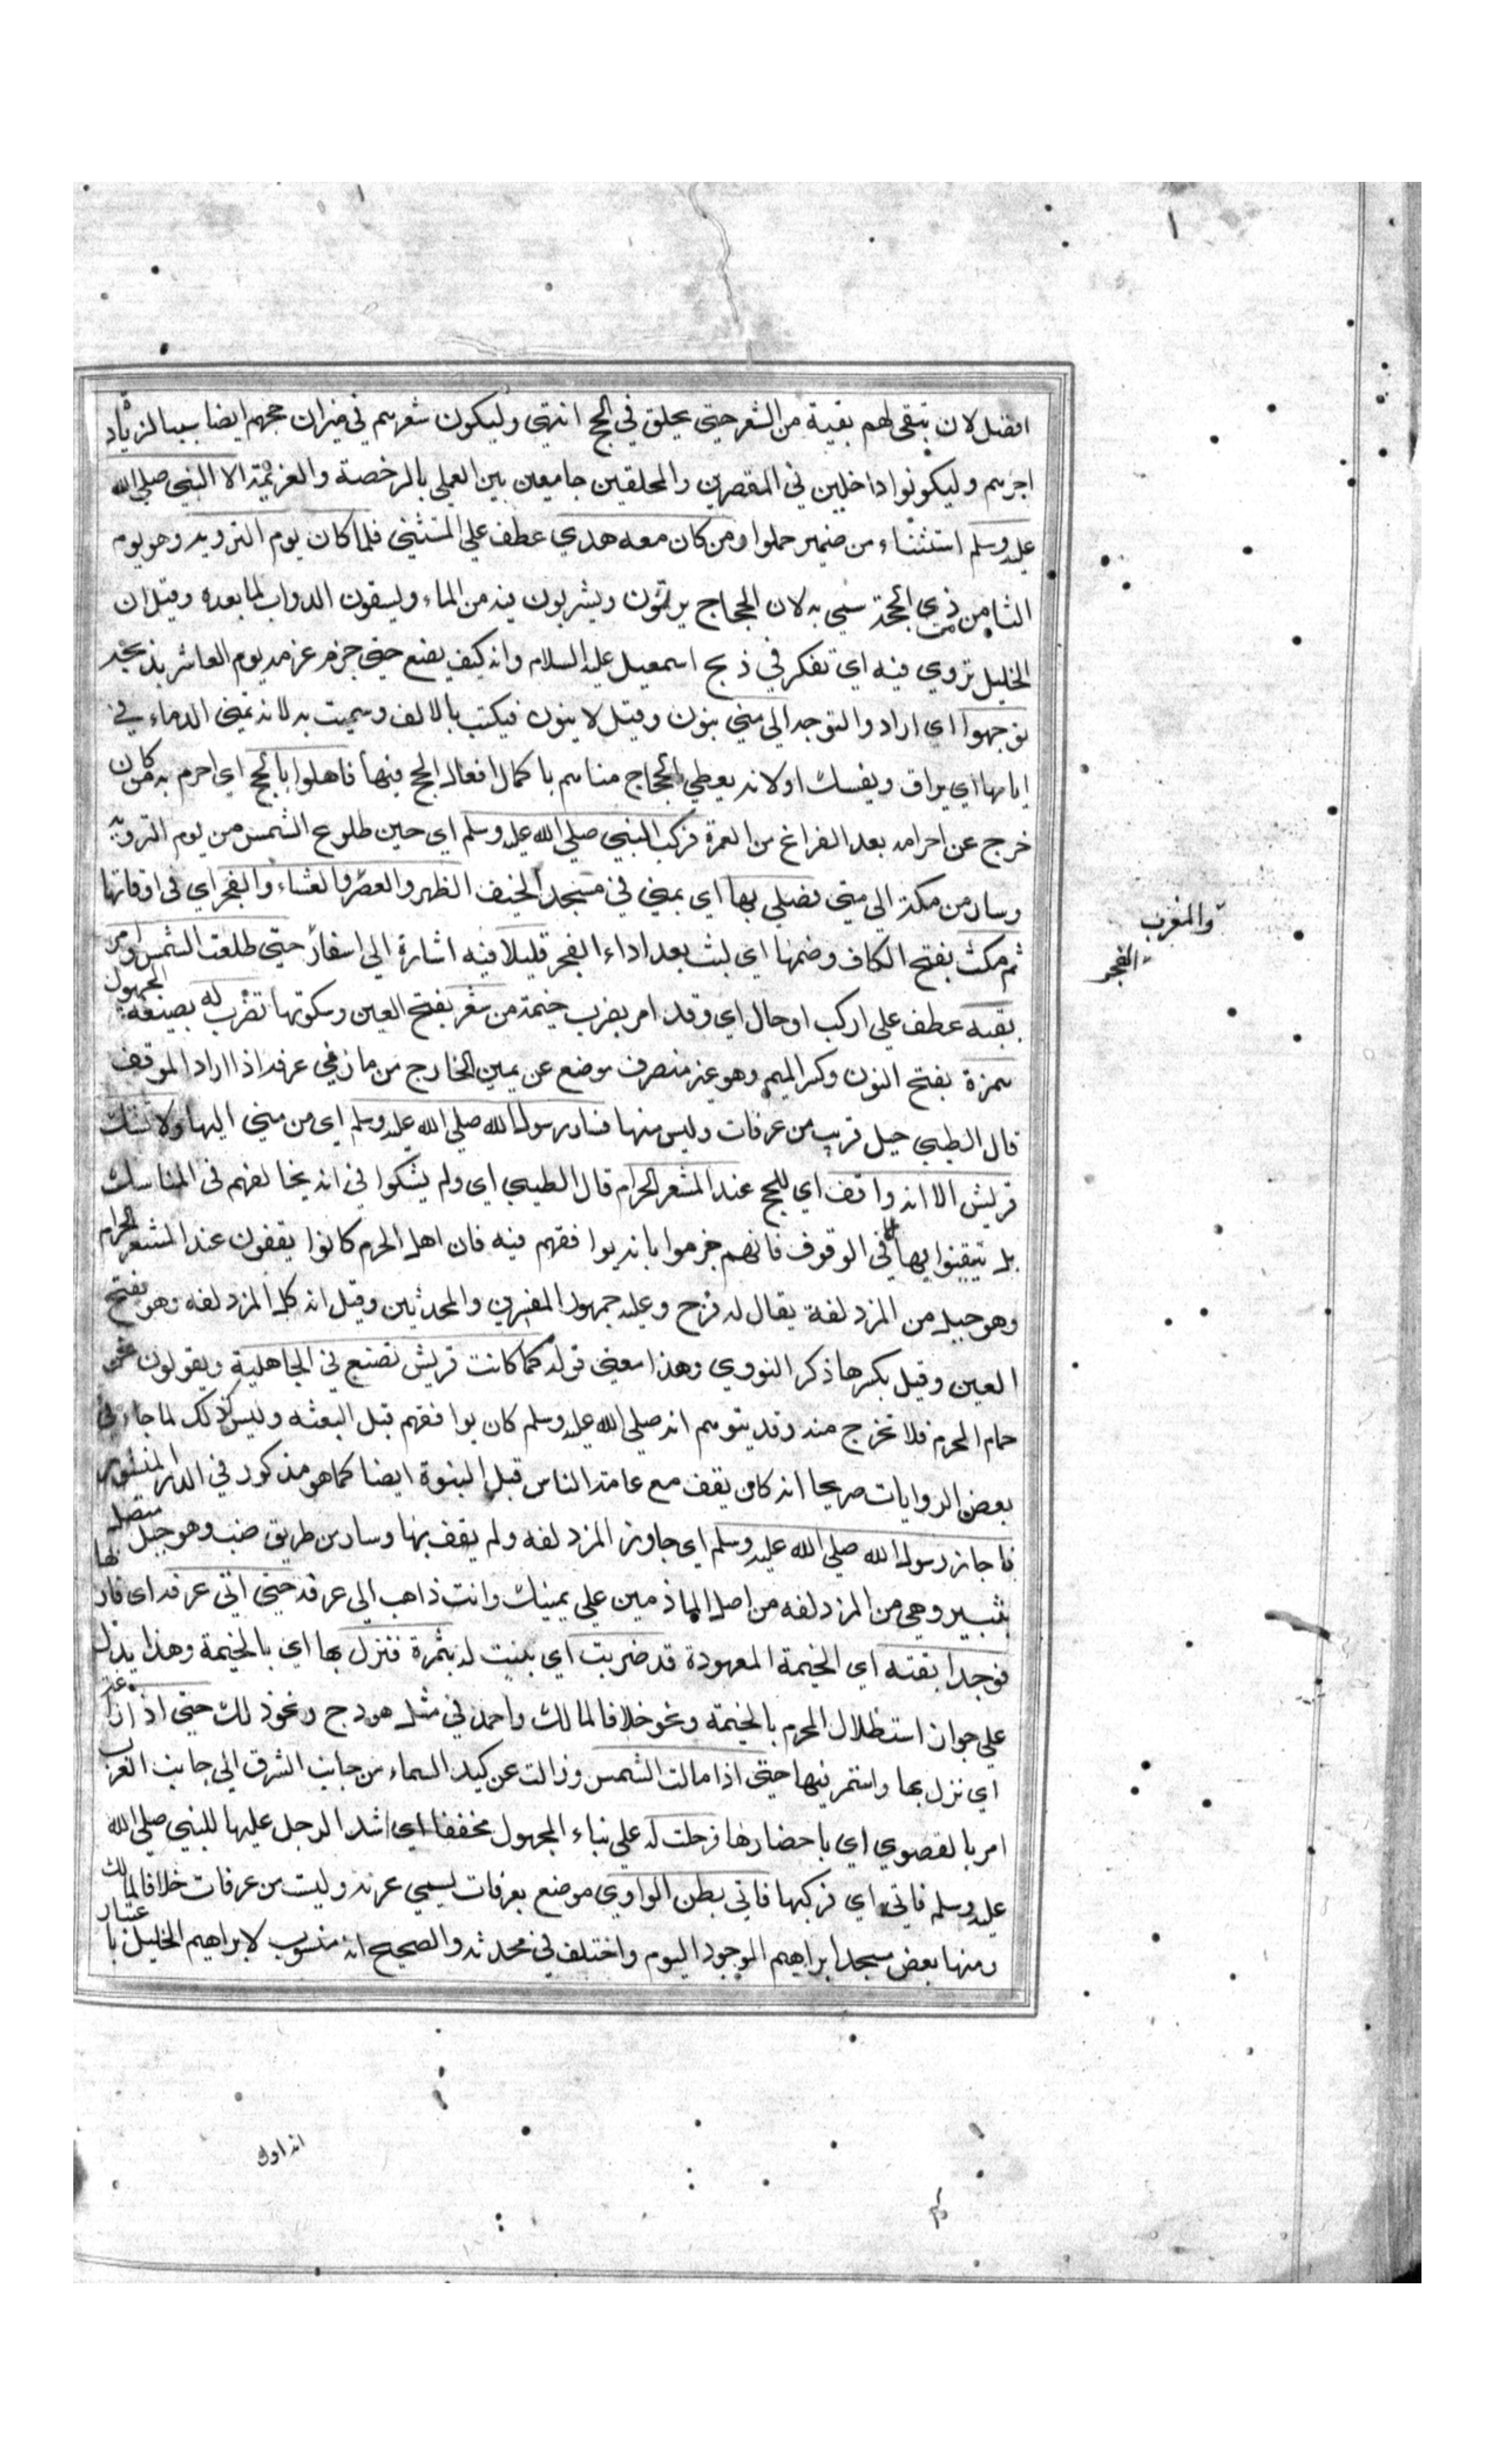 افضل لان تبقى لهم بقية من الشعر حتى يحلق في الحج انتهى وليكون شعرهم في ميزان حجهم ايضا سببا لزيادة
اجرهم وليكونوا داخلين في المقصرين والمحلقين جامعين بين العمل بالرخصة والعزيمة الا النبي صلى الله
عليه وسلم استثناء من ضمير حلوا ومن كان معه هدي عطف على المستثنى فلما كان يوم التروية وهو يوم
الثامن من ذي الحجة سمي به لان الحجاج يرتوون ويشربون فيه من الماء ويسقون الدواب لما بعده وقيل ان
الخليل تروي فيه اي تفكر في ذبح اسمعيل عليه السلام وانه كيف يصنع حتى جزم عزمه يوم العاشر بذبحه
توجهوا اي ارادوا التوجه الى منى بنون وقيل لا ينون فيكتب بالالف وسميت به لانه تمنى الدماء في
ايامها اي يراق ويفسك اولانه يعطي الحجاج مناهم باكمال افعال الحج فيها فاهلوا بالحج اي احرم به من كان
خرج عن احرامه بعد الفراغ من العمرة فركب النبي صلى الله عليه وسلم اي حين طلوع الشمس من يوم التروية
وسار من مكة الى منى فصلى بها اي بمنى في مسجد الخيف الظهر والعصر والعشاء والفجر اي في اوقاتها
والمغرب
الفجر
ثم مكث بفتح الكاف وضمها اي لبث بعد اداء الفجر قليلا فيه اشارة الى اسفار حتى طلعت الشمس وامر
بقبة عطف على اركب او حال اي وقد امر بضرب خيمة من شعر بفتح العين وسكونها تضرب له بصيغة المجهول
بنمرة بفتح النون وكسر الميم وهو غير منصرف موضع عن يمين الخارج من مازمي عرفة اذا اراد الموقف
قال الطيبي جبل قريب من عرفات وليس منها فسار رسول الله صلى الله عليه وسلم اي من منى اليها ولا تشك
قريش الا انه واقف اي للحج عند المشعر الحرام قال الطيبي اي ولم يشكوا في انه يخالفهم في المناسك
بل تيقنوا بها في الوقوف فانهم جزموا بانه يوافقهم فيه فان اهل الحرم كانوا يقفون عند المشعر الحرام
وهو جبل من المزدلفة يقال له قزح وعليه جمهور المفسرين والمحدثين وقيل انه كل المزدلفة وهو بفتح
العين وقيل بكسرها ذكر النووي وهذا معنى قوله كما كانت قريش تصنع في الجاهلية ويقولون نحن
حمام الحرم فلا نخرج منه وقد يتوهم انه صلى الله عليه وسلم كان يوافقهم قبل البعثة وليس كذلك لما جاء في
بعض الروايات صريحا انه كان يقف مع عامة الناس قبل النبوة ايضا كما هو مذكور في الدر المنثور
فاجاز رسول الله صلى الله عليه وسلم اي جاوز المزدلفة ولم يقف بها وسار من طريق ضب وهو جبل متصل لها
بثبير وهي من المزدلفة من اصل الماذمين على يمينك وانت ذاهب الى عرفة حتى اتى عرفة اي قار
فوجد القبة اي الخيمة المعهودة قد ضربت اي بنيت له بنمرة فنزل بها اي بالخيمة وهذا يدل
على جواز استظلال المحرم بالخيمة ونحو خلافا لمالك واحمد في مثل هودج ونحو ذلك حتى اذا زا
اي نزل بها واستمر فيها حتى اذا مالت الشمس وزالت عن كبد السماء من جانب الشرق الى جانب الغرب
امر بالقصوي اي باحضارها فرحلت له على بناء المجهول مخففا اي شد الرحل عليها للنبي صلى الله
عليه وسلم فاتى اي فركبها فاتى بطن الوادي موضع بعرفات يسمى عرنة وليست من عرفات خلافا لمالك
ومنها بعض مسجد ابراهيم الموجود اليوم واختلف في محدثه والصحيح انه منسوب لابراهيم الخليل باعتبار
انه اول